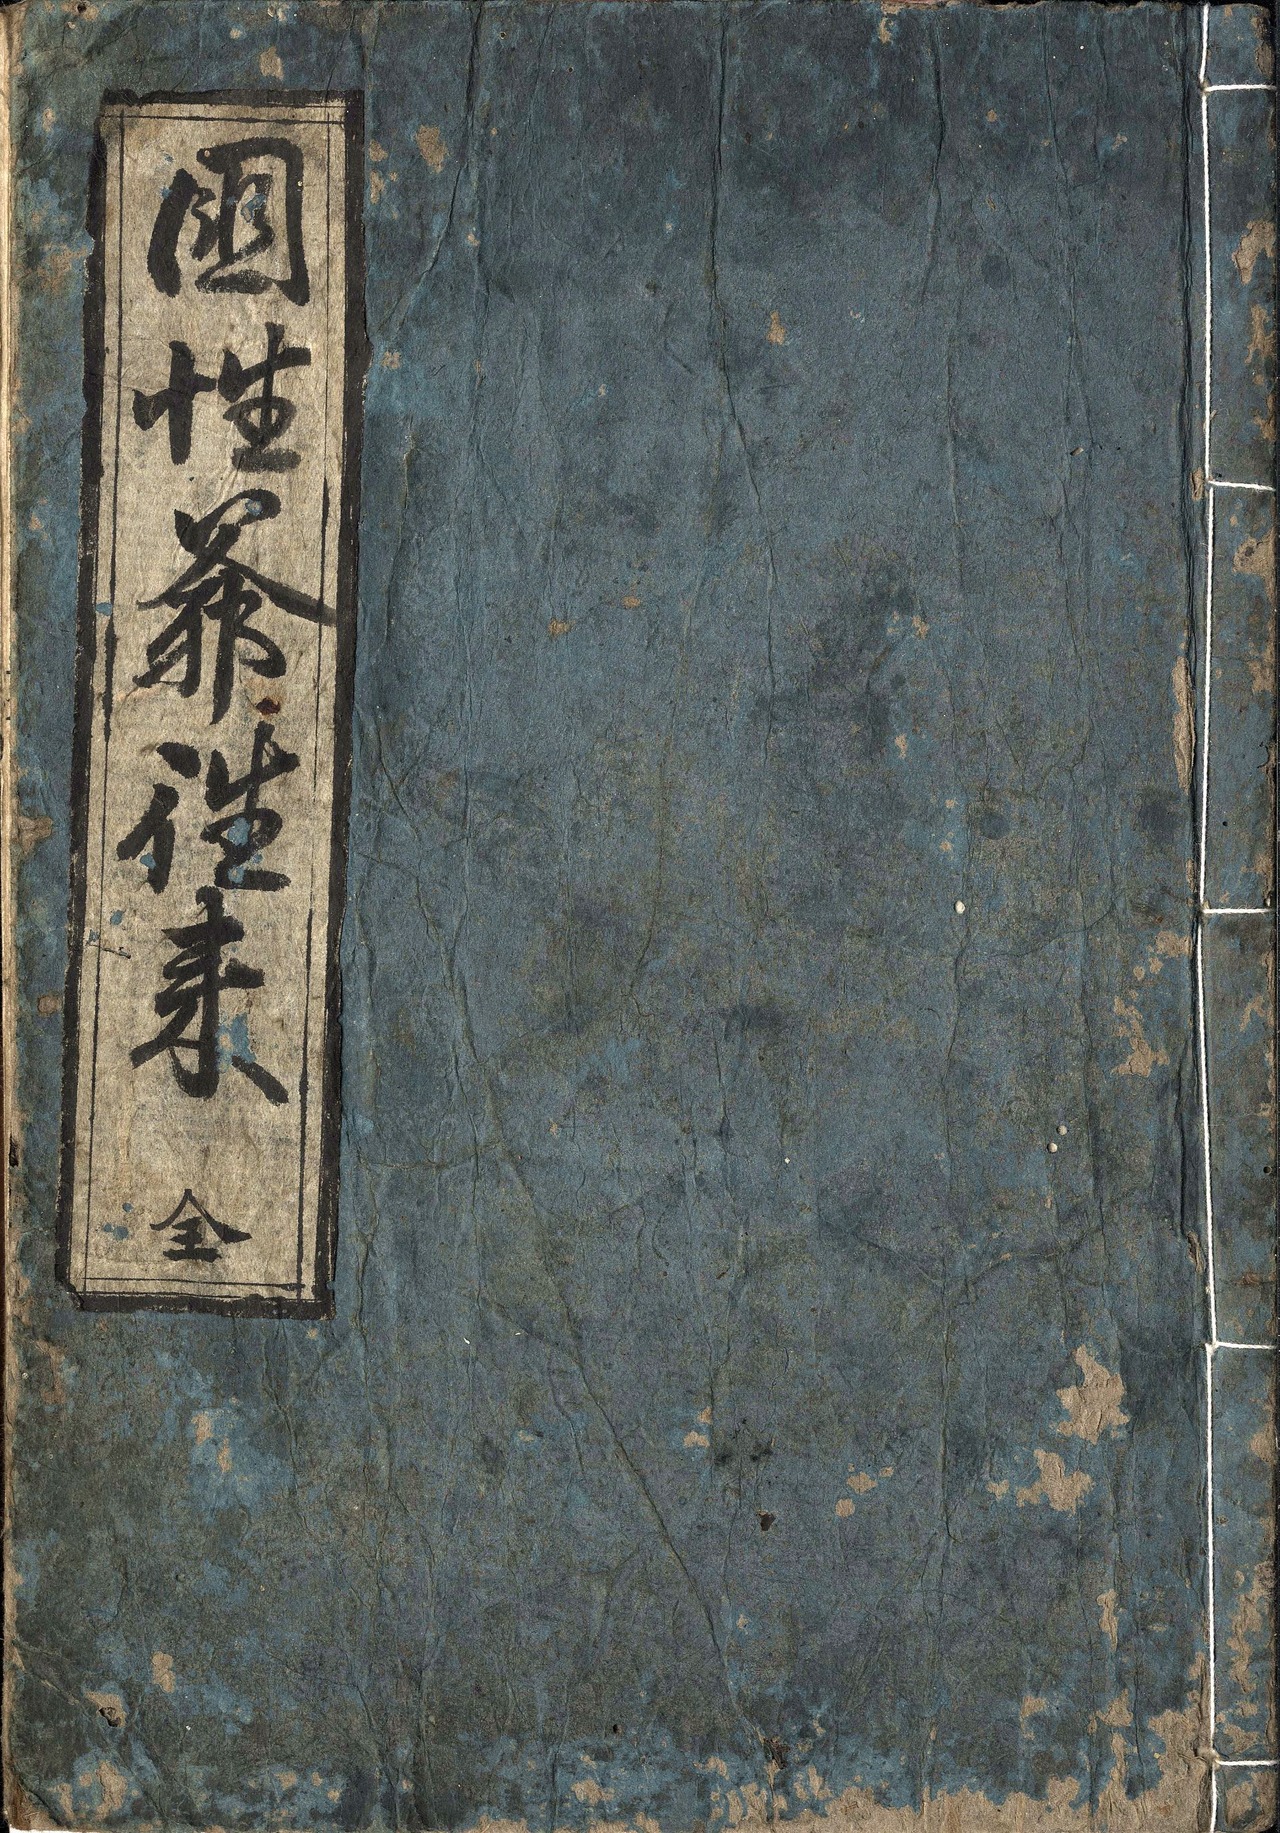 國性爺徃来
全